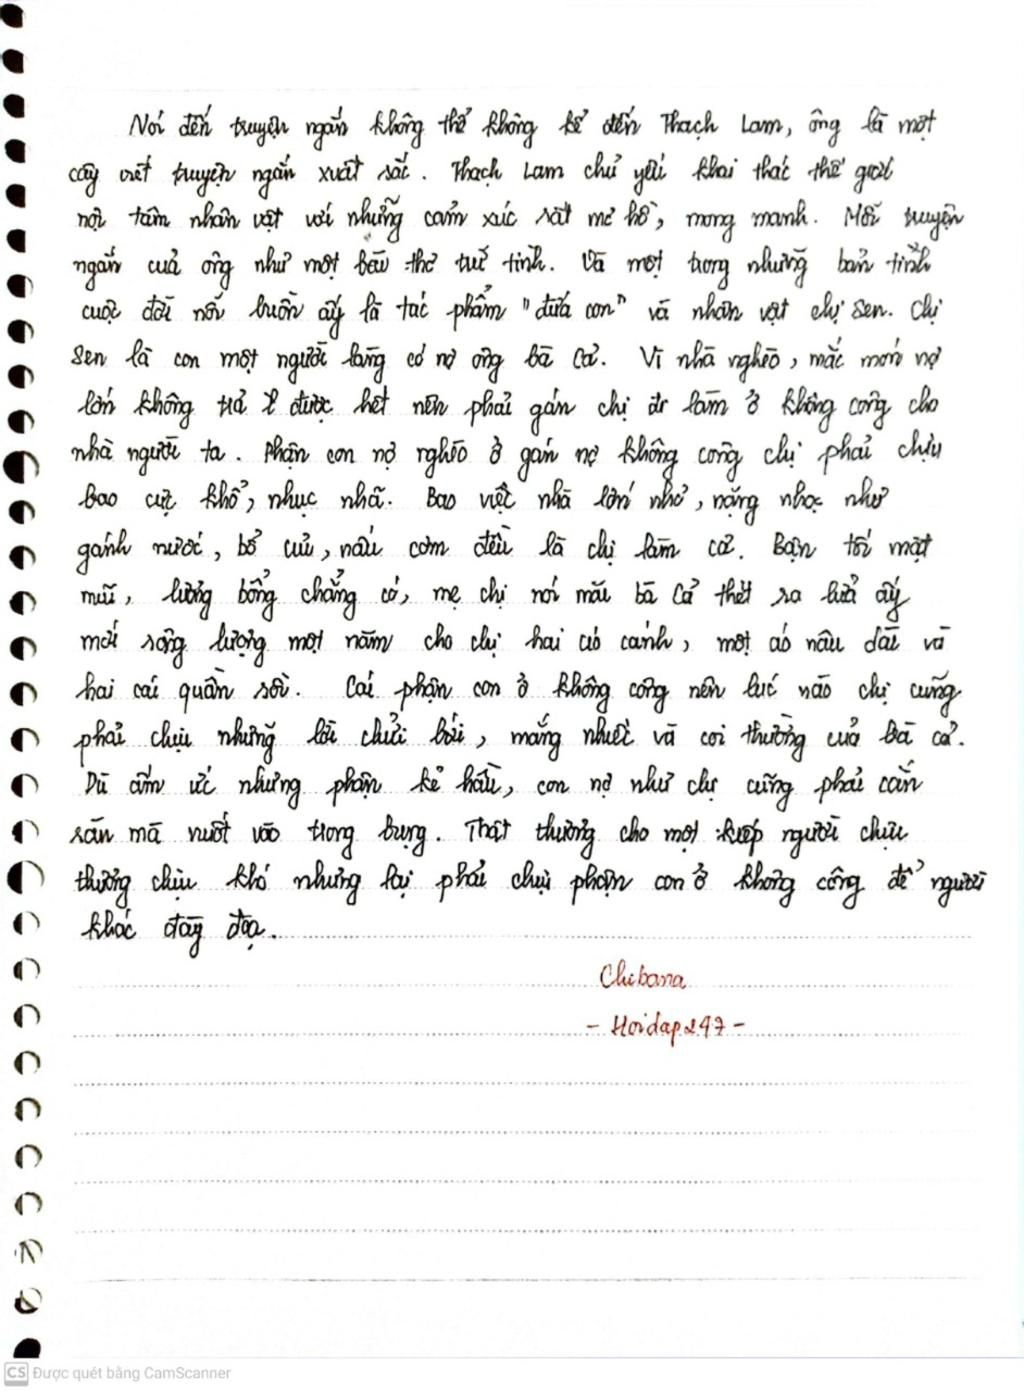 Nói đến truyện ngắn không thể không kể đến Thạch Lam, ông là một
cây viết truyện ngắn xuất sắc. Thạch Lam chủ yếu khai thác thế giới
nội tâm nhân vật với những cảm xúc rất mơ hồ, mong manh. Mỗi truyện
ngắn của ông như một bài thơ trữ tình. Và một trong những bản tình
cuộc đời nỗi buồn ấy là tác phẩm "đứa con" và nhân vật chị Sen. Chị
Sen là con một người làng có nợ ông bà Cả. Vì nhà nghèo, mắc món nợ
lớn không trả được hết nên phải gán chị đi làm ở không công cho
nhà người ta. Phận con nợ nghèo ở gán nợ không công chị phải chịu
bao cực khổ, nhục nhã. Bao việc nhà lớn nhỏ, nặng nhọc như
gánh nước, bổ củi, nấu cơm đều là chị làm cả. Bận tối mặt
mũi, lương bổng chẳng có, mẹ chị nói mãi bà Cả thét ra lửa ấy
mới song lượng một năm cho chị hai áo cánh, một áo nâu dài và
hai cái quần sồi. Cái phận con ở không công nên lúc nào chị cũng
phải chịu những lời chửi bới, mắng nhiếc và coi thường của bà cả.
Dù ấm ức nhưng phận kẻ hầu, con nợ như chị cũng phải cắn
răn mà nuốt vào trong bụng. Thật thường cho một kiếp người chịu
thương chịu khó nhưng lại phải chịu phận con ở không công để người
khác đày đọa.
Chibana
- Hoidap247 -
CS Được quét bằng CamScanner